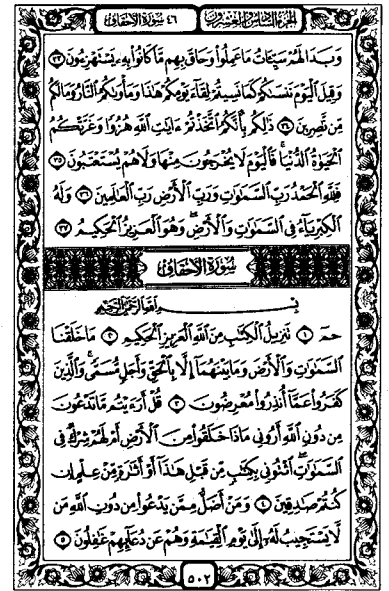 الجزء السادس والعشرون ٤٦ سورة الأحقاف
وَبَدَا لَهُمْ سَيِّئَاتُ مَا عَمِلُوا۟ وَحَاقَ بِهِم مَّا كَانُوا۟ بِهِۦ يَسْتَهْزِءُونَ ٣٣
وَقِيلَ ٱلْيَوْمَ نَنسَىٰكُمْ كَمَا نَسِيتُمْ لِقَآءَ يَوْمِكُمْ هَٰذَا وَمَأْوَىٰكُمُ ٱلنَّارُ وَمَا لَكُم
مِّن نَّٰصِرِينَ ٣٤ ذَٰلِكُم بِأَنَّكُمُ ٱتَّخَذْتُمْ ءَايَٰتِ ٱللَّهِ هُزُوًا وَغَرَّتْكُمُ
ٱلْحَيَوٰةُ ٱلدُّنْيَا ۚ فَٱلْيَوْمَ لَا يُخْرَجُونَ مِنْهَا وَلَا هُمْ يُسْتَعْتَبُونَ ٣٥
فَلِلَّهِ ٱلْحَمْدُ رَبِّ ٱلسَّمَٰوَٰتِ وَرَبِّ ٱلْأَرْضِ رَبِّ ٱلْعَٰلَمِينَ ٣٦ وَلَهُ
ٱلْكِبْرِيَآءُ فِى ٱلسَّمَٰوَٰتِ وَٱلْأَرْضِ ۖ وَهُوَ ٱلْعَزِيزُ ٱلْحَكِيمُ ٣٧
سُورَةُ الأَحْقَافِ
بِسْمِ ٱللَّهِ ٱلرَّحْمَٰنِ ٱلرَّحِيمِ
حمٓ ١ تَنزِيلُ ٱلْكِتَٰبِ مِنَ ٱللَّهِ ٱلْعَزِيزِ ٱلْحَكِيمِ ٢ مَا خَلَقْنَا
ٱلسَّمَٰوَٰتِ وَٱلْأَرْضَ وَمَا بَيْنَهُمَآ إِلَّا بِٱلْحَقِّ وَأَجَلٍ مُّسَمًّى ۚ وَٱلَّذِينَ
كَفَرُوا۟ عَمَّآ أُنذِرُوا۟ مُعْرِضُونَ ٣ قُلْ أَرَءَيْتُم مَّا تَدْعُونَ
مِن دُونِ ٱللَّهِ أَرُونِى مَاذَا خَلَقُوا۟ مِنَ ٱلْأَرْضِ أَمْ لَهُمْ شِرْكٌ فِى
ٱلسَّمَٰوَٰتِ ۖ ٱئْتُونِى بِكِتَٰبٍ مِّن قَبْلِ هَٰذَآ أَوْ أَثَٰرَةٍ مِّنْ عِلْمٍ إِن
كُنتُمْ صَٰدِقِينَ ٤ وَمَنْ أَضَلُّ مِمَّن يَدْعُوا۟ مِن دُونِ ٱللَّهِ مَن
لَّا يَسْتَجِيبُ لَهُۥٓ إِلَىٰ يَوْمِ ٱلْقِيَٰمَةِ وَهُمْ عَن دُعَآئِهِمْ غَٰفِلُونَ ٥
٥٠٢